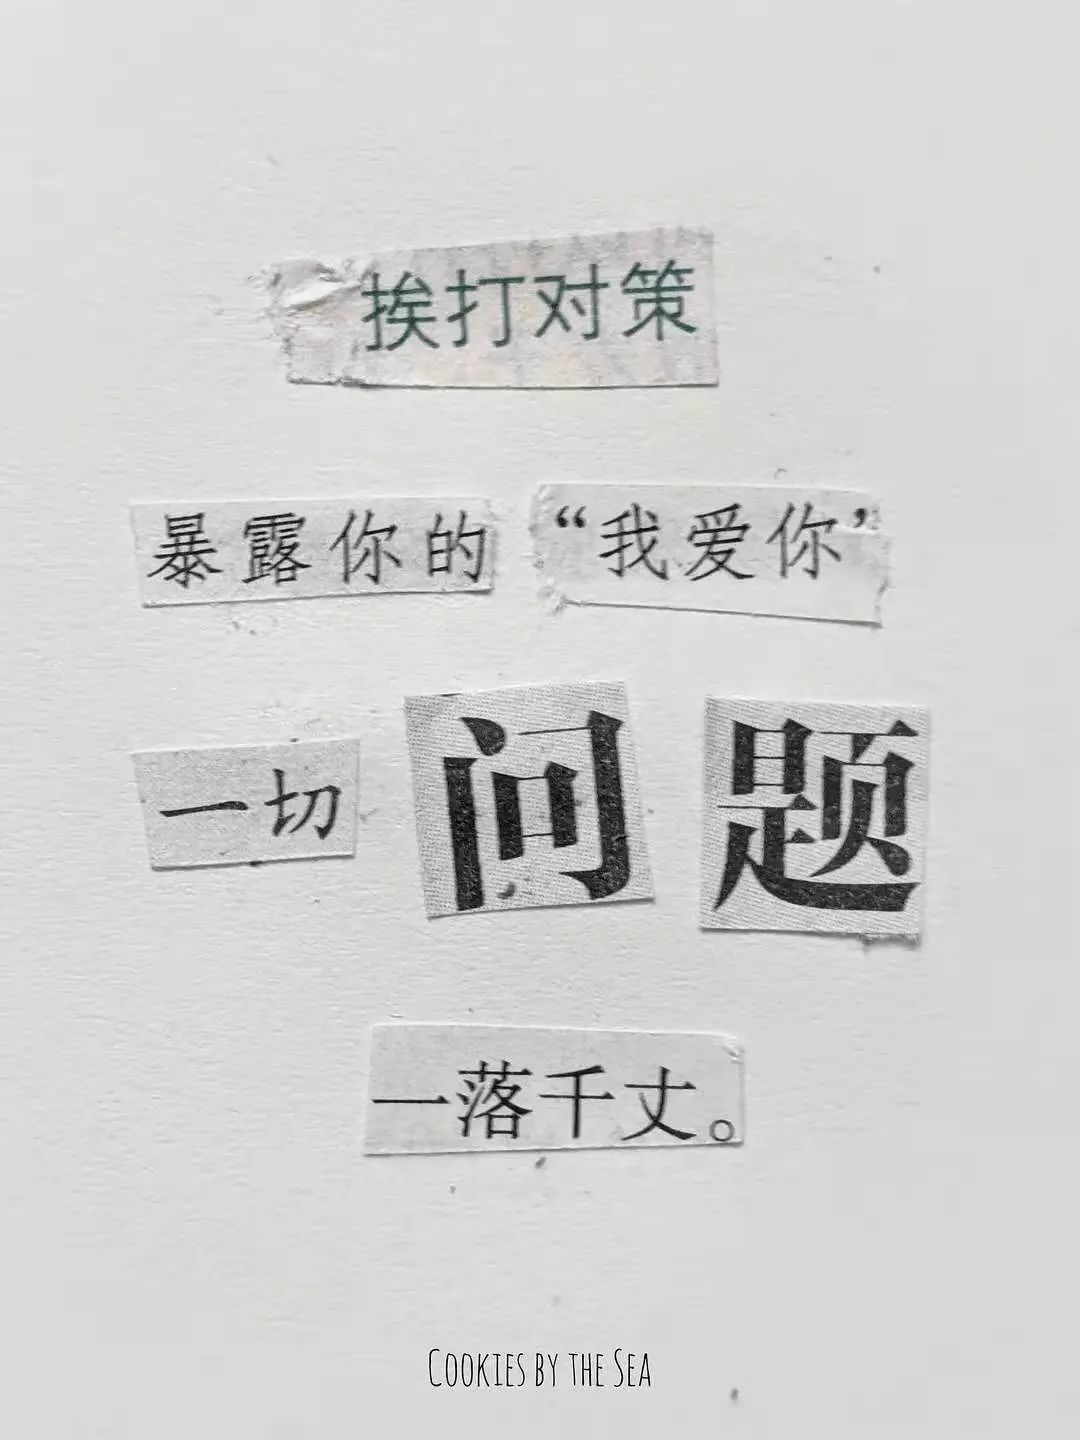 挨打对策
暴露你的 “我爱你”
一切 问题
一落千丈。
COOKIES BY THE SEA